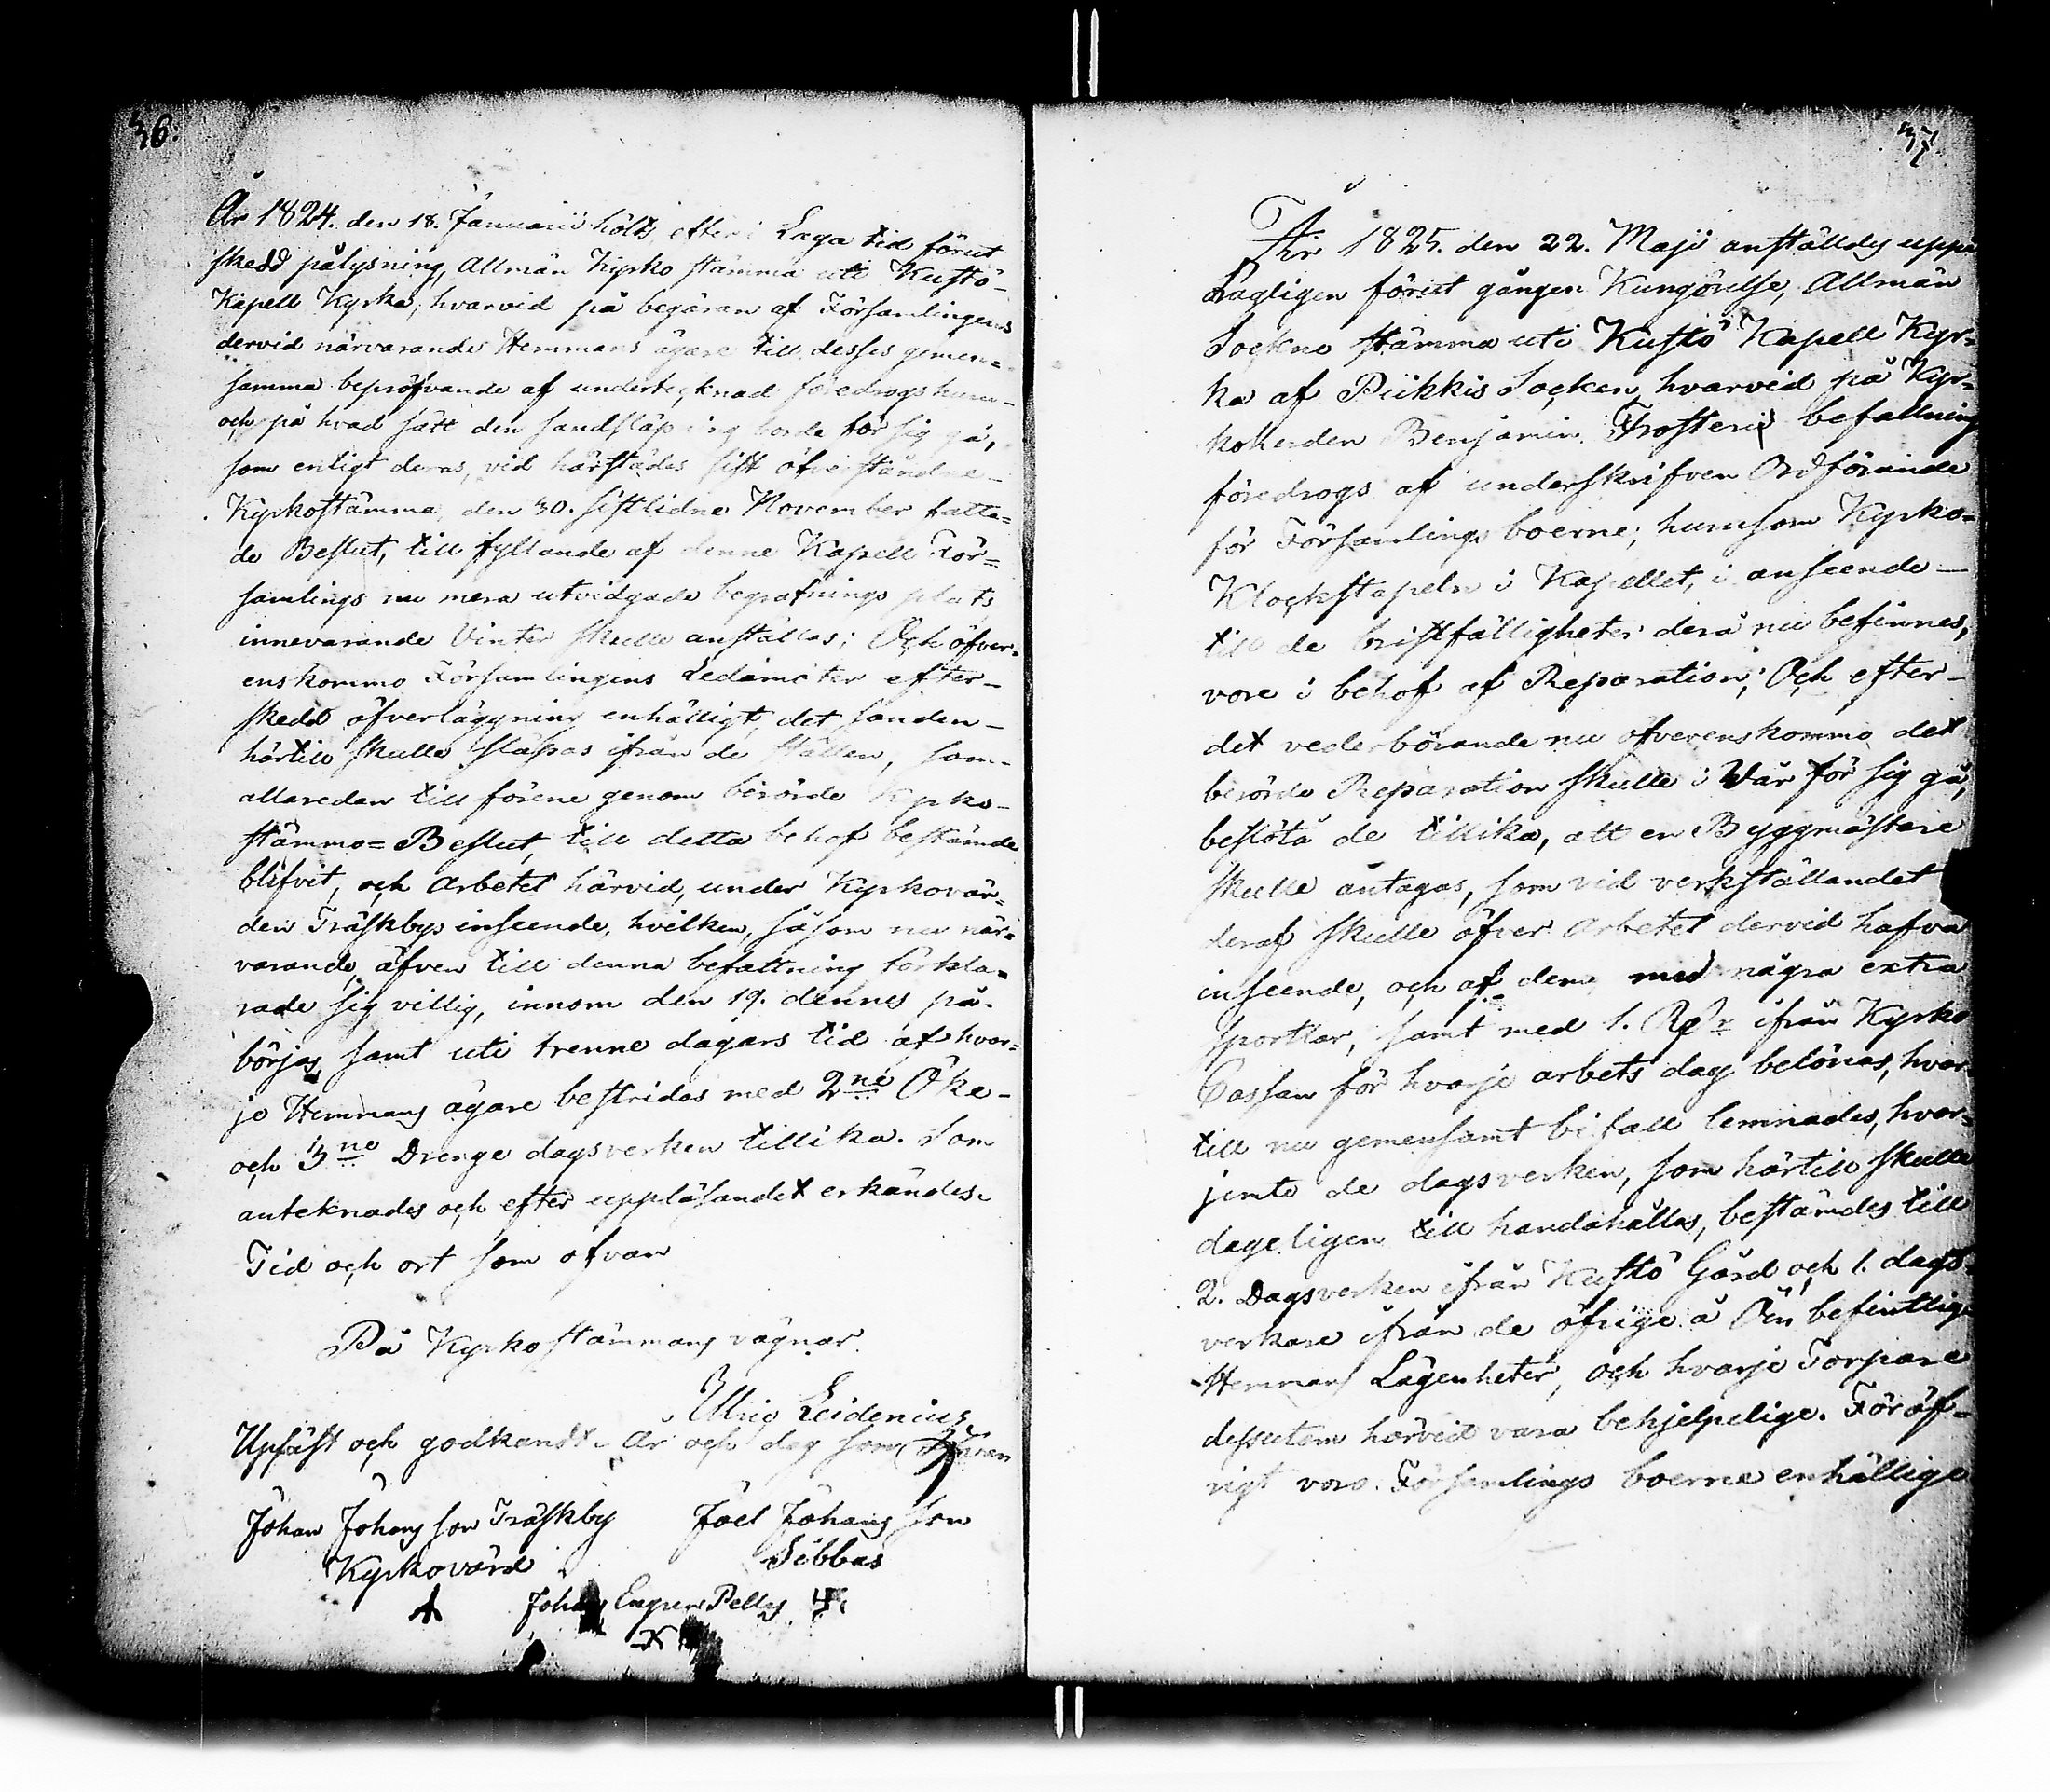 36.
År 1824. den 18. Januarii hölts, efter i Laga tid förut
skedd pålysning, Allmän Kyrko stämma uti Kustö-
Kapell Kyrka, hvarvid på begäran af Församlingens
dervid närvarande Hemmans ägare till desses gemen=
samma bepröfvande af underteknad föredrogs huru-
och på hvad sätt den sandsläpning borde för sig gå,
som enligt deras, vid härstädes sist öfverståndne-
Kyrkostämma, den 30. sistlidne November fatta=
de Beslut, till fyllande af denne Kapell För=
samlings nu mera utvidgade begrafnings plats
innevarande Vinter skulle anställas; Och öfver-
enskommo Församlingens Ledamöter efter-
skedd öfverläggning enhälligt, det sanden-
härtill skulle släpas ifrån de ställen, som-
allaredan till förene genom berörde Kyrko-
stämmo=Beslut, till detta behof bestämde
blifvit, och arbetet härvid, under Kyrkovär=
den Träskbys inseende, hvilken, såsom nu när=
varande, äfven till denna befattning förkla=
rade sig villig, innom den 19. dennes på-
börjas, samt uti trenne dagars tid af hvar=
je Hemmans ägare bestridas med 2ne Öke-
och 3ne Drenge dagsverken tillika. Som
anteknades och efter uppläsandet erkändes.
Tid och ort som ofvan
På Kyrkostämmans vägnar.
Ulric Leidenius
Upläst och godkandt. År och dag som ofvan
Johan Johansson Träskby Joel Johansson
Kyrkovärd Sibbas
Johan Engren Pellas
37.
År 1825. den 22. Maji anställdes uppå
Lagligen förut gången Kungörelse, Allmän
Sockne stämma uti Kustö Kapell Kyr=
ka af Piikkis Socken, hvarvid på Kyr=
koherden Benjamin Frosterii befallning
föredrogs af underskrifven Ordförande
för Församlings boerne; hurusom Kyrko=
Klockstapeln i Kapellet, i anseende-
till de bristfälligheter derå nu befinnes,
vore i behof af Reparation; Och efter-
det vederbörande nu öfverenskommo det
berörde Reparation skulle i Vår för sig gå,
beslöto de tillika, att en Byggmästare
skulle antagas, som vid verkställandet
deraf skulle öfver arbetet dervid hafva
inseende, och af dem med några extra
sportlar, samt med 1. Rdr ifrån Kyrko
Cassan för hvarje arbets dag belönas, hvar
till nu gemensamt bifall lemnades, hvar=
jemte de dagsverken, som härtill skulle
dageligen till handahållas, bestämdes till
2. Dagsverken ifrån Kustö Gård och 1. dags-
verkare ifrån de öfrige å Ön befintlige
Hemmans Lägenheter, och hvarje Torpare
dessutom härvid vara behjelpelige. För öf=
rigt voro Församlings boerne enhällige